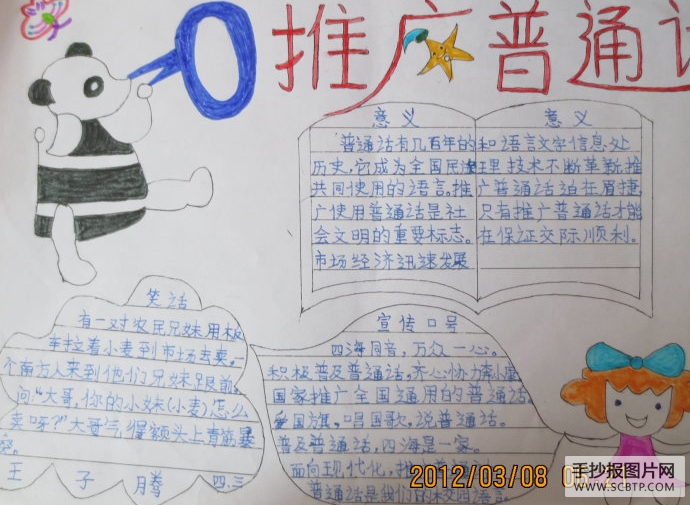 推广普通话
意义
普通话有几百年的
历史，它成为全国民族
共同使用的语言，推
广使用普通话是社
会文明的重要标志。
市场经济迅速发展
意义
和语言文字信息处
理技术不断革新，推
广普通话迫在眉捷
只有推广普通话才能
在保证交际顺利。
笑话
有一对农民兄妹用板
车拉着小麦到市场去卖。一
个南方人来到他们兄妹跟前
问“大哥，你的小妹(小麦)怎么
卖呀？”大哥气得额头上青筋暴
突。
王子腾 四.三
宣传口号
四海同音，万众一心。
积极普及普通话，齐心协力奔小康
国家推广全国通用的普通话
爱国旗，唱国歌，说普通话。
普及普通话，四海是一家。
面向现代化，推
普通话是我们的校园语言。
2012/03/08
手抄报图片网
www.SCBTP.com